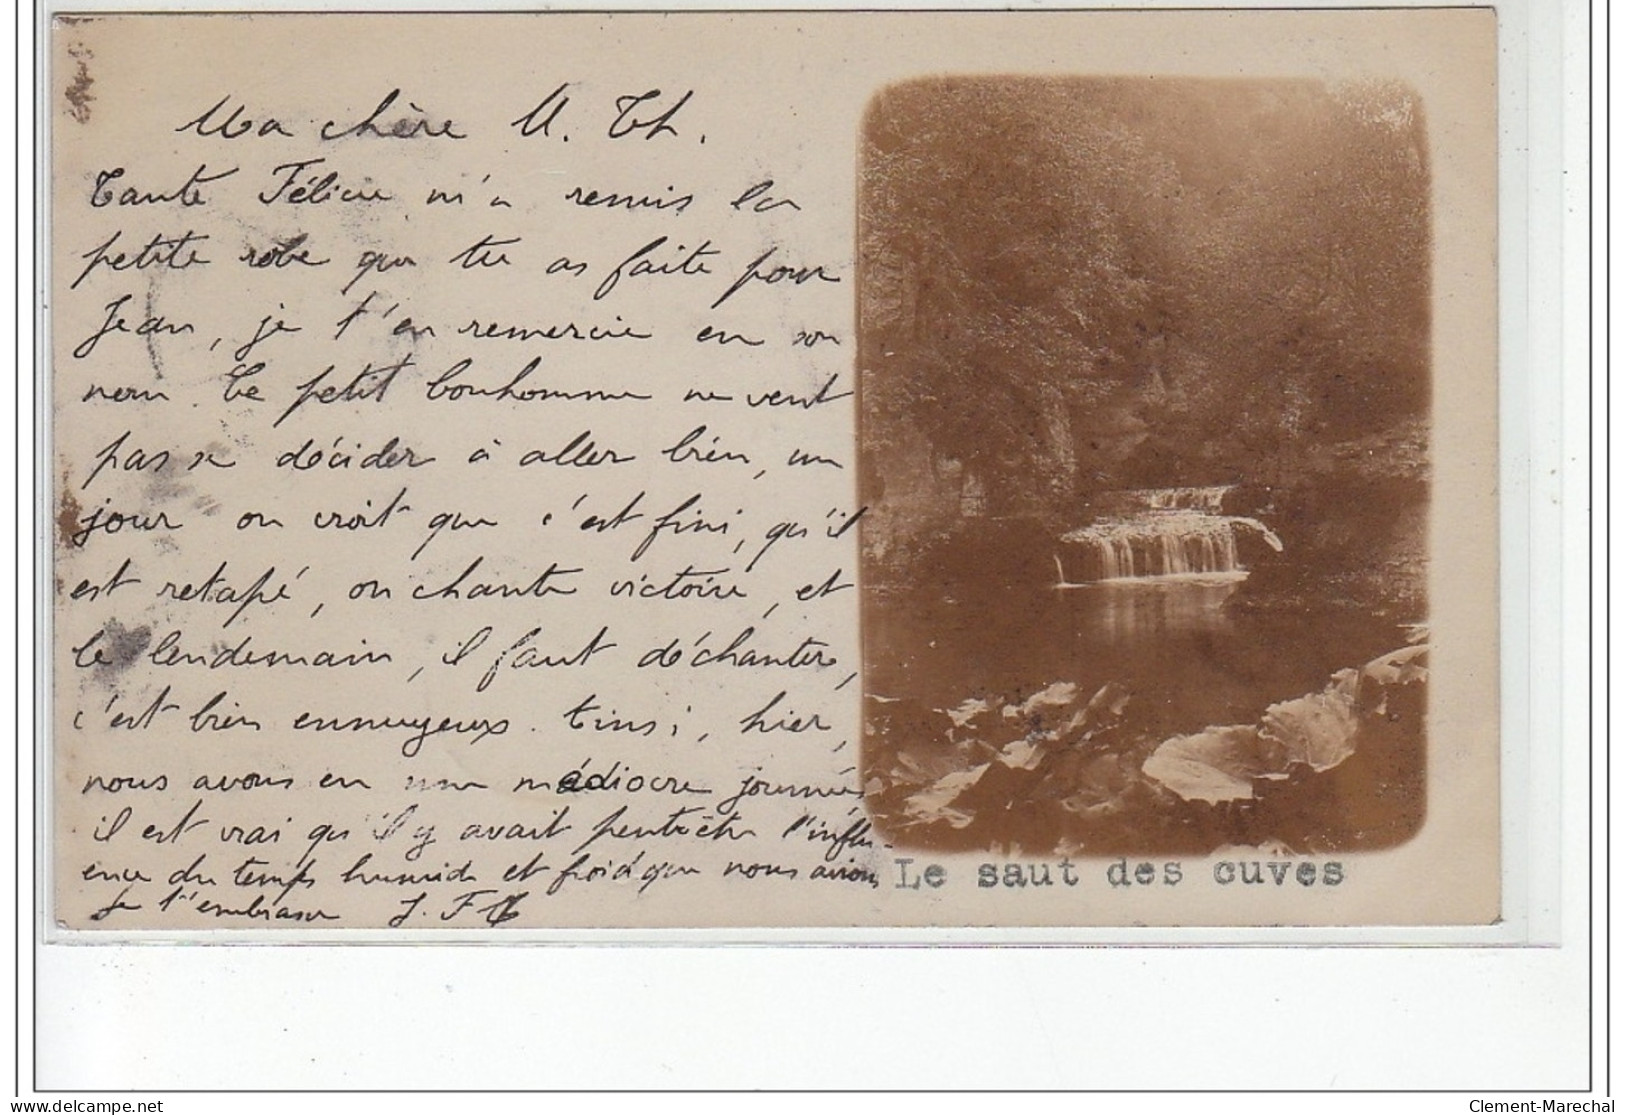 Ma chère M. Th.
Tante Félicie m'a remis la
petite robe que tu as faite pour
Jean, je t'en remercie en son
nom. Ce petit bonhomme ne veut
pas se décider à aller bien, un
jour on croit que c'est fini, qu'il
est retapé, on chante victoire, et
le lendemain, il faut déchanter,
c'est bien ennuyeux. Ainsi, hier,
nous avons eu une médiocre journée
il est vrai qu'il y avait peut-être l'influ-
ence du temps humide et froid que nous avions
Je t'embrasse J. F
Le saut des cuves
Clement-Marechal
delcampe.net